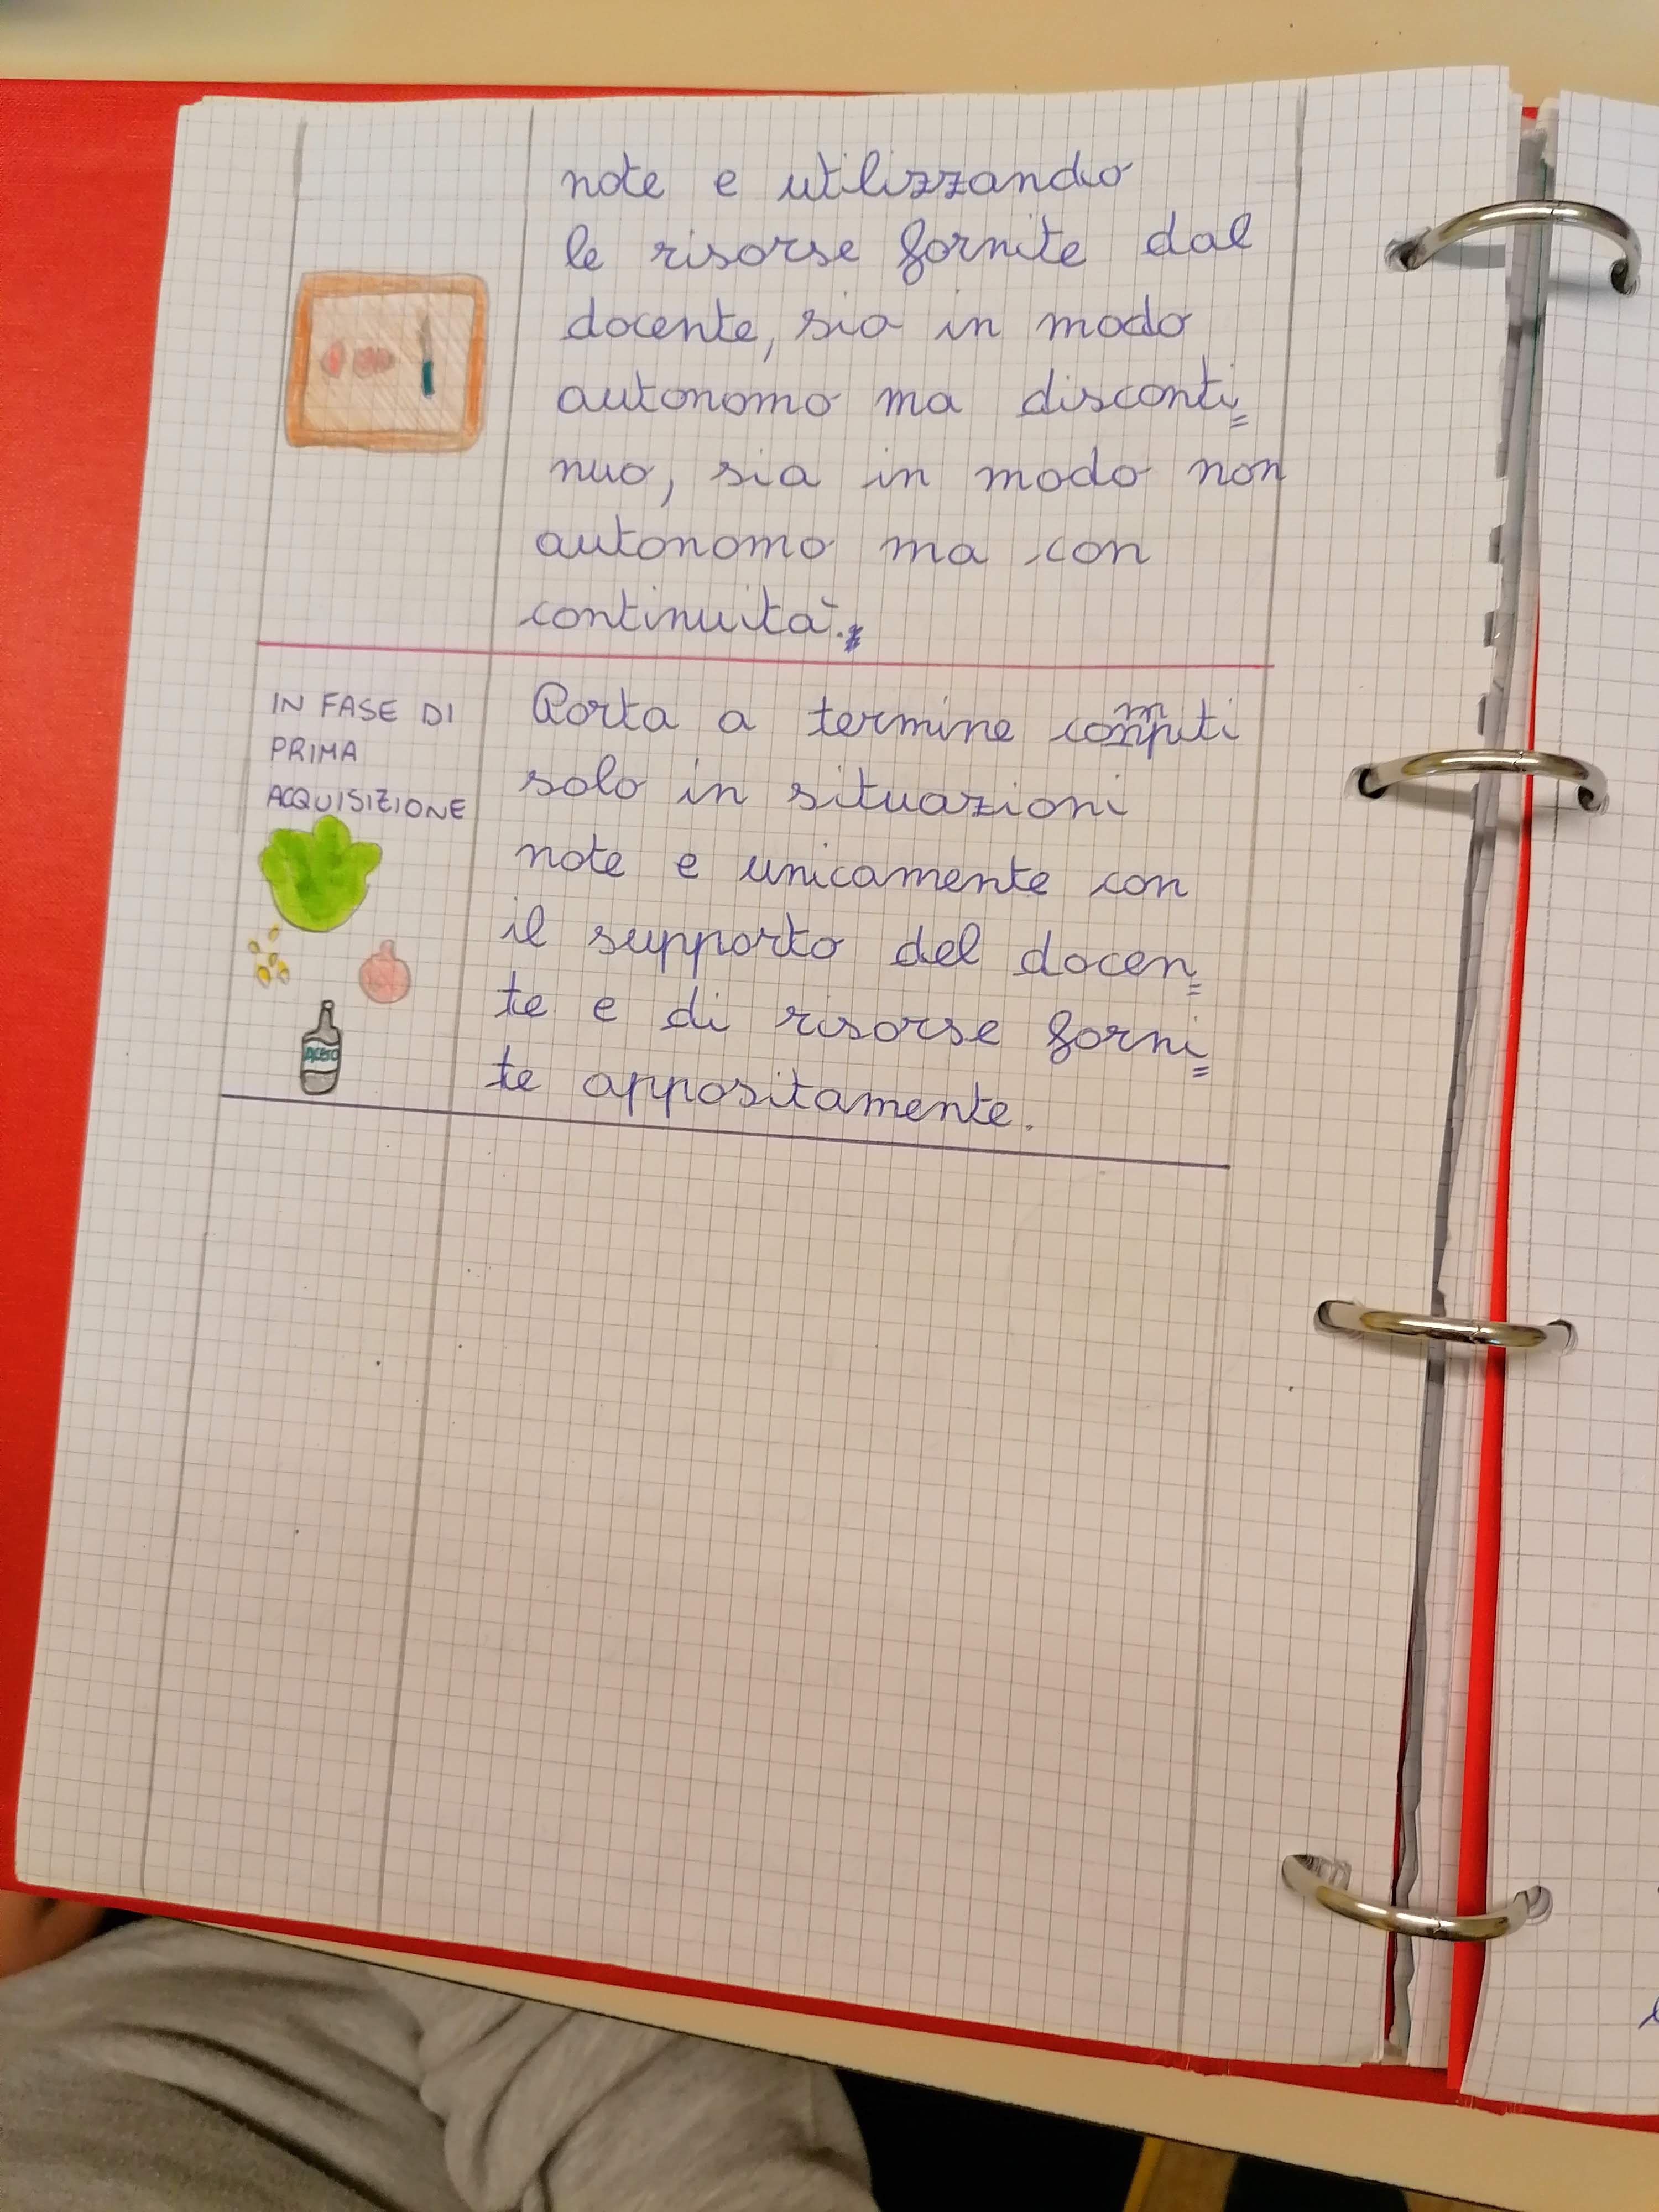 note e utilizzando
le risorse fornite dal
docente, sia in modo
autonomo ma disconti=
nuo, sia in modo non
autonomo ma con
continuità.
IN FASE DI
PRIMA
ACQUISIZIONE
Porta a termine compiti
solo in situazioni
note e unicamente con
il supporto del docen=
te e di risorse forni=
te appositamente.
ACETO